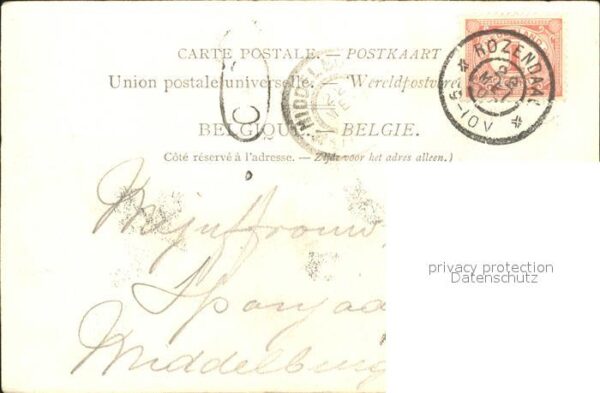 CARTE POSTALE. — POSTKAART
Union postale universelle. — Wereldpostver
BELGIQUE. — BELGIE.
Côté réservé à l'adresse. — Zijde voor het adres alleen.)
ROZENDAAL
MIDDELB
Mejuffrouw
Middelburg
privacy protection
Datenschutz